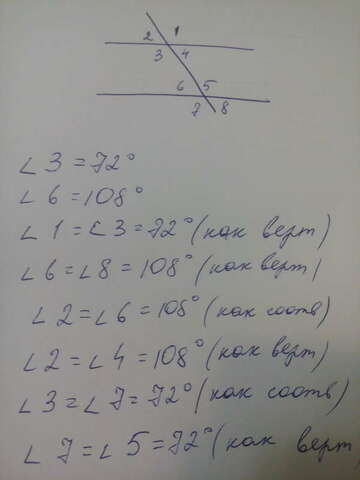 2 1
3 4
6 5
7 8
∠3=72°
∠6=108°
∠1=∠3=72°(как верт)
∠6=∠8=108°(как верт)
∠2=∠6=108°(как соотв)
∠2=∠4=108°(как верт)
∠3=∠7=72°(как соотв)
∠7=∠5=72°(как верт